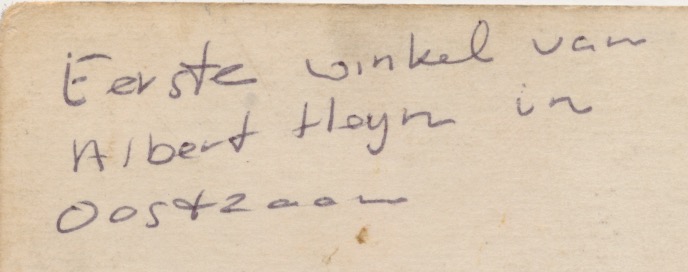 Eerste winkel van
Albert Heyn in
Oostzaan